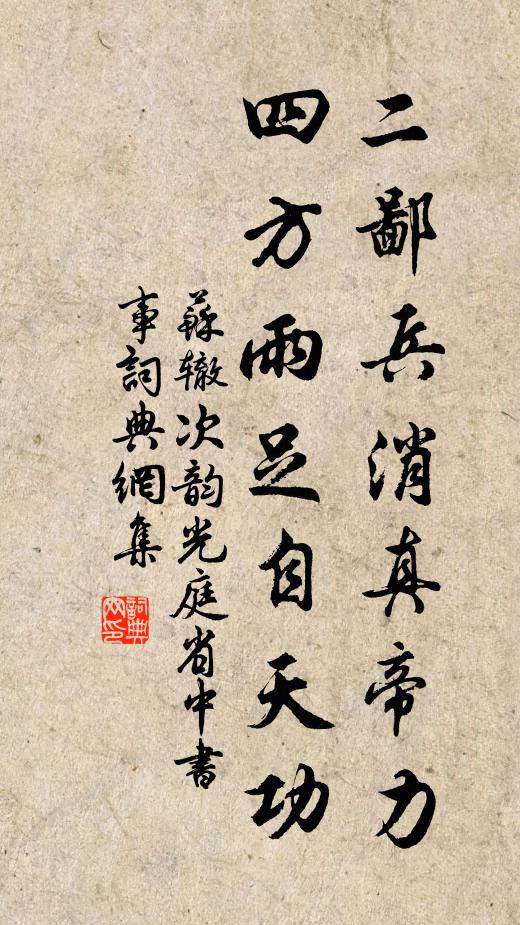 二鄙兵消真帝力
四方雨足自天功
蘇辙次韵光庭省中書
事詞典網集
詞典
网印